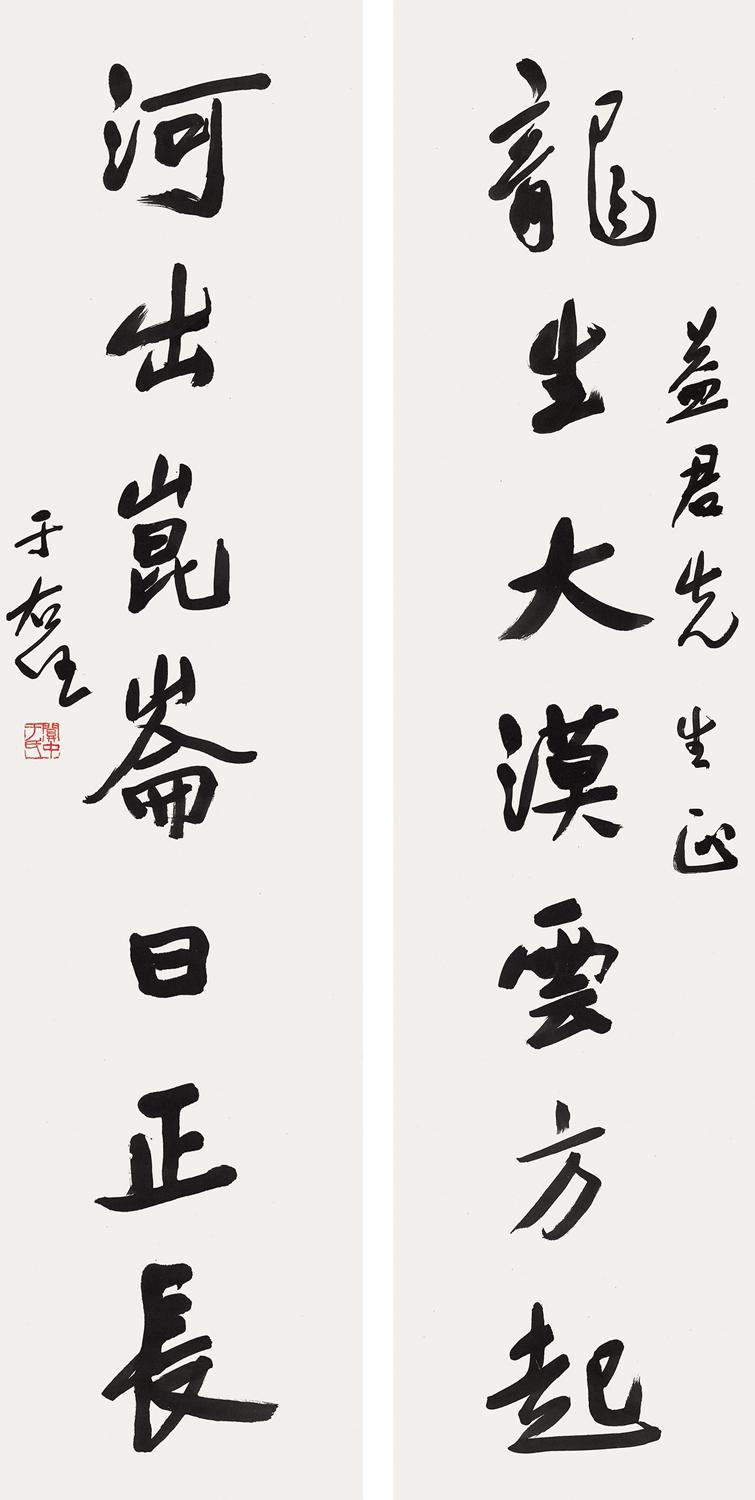 益君先生正
龍生大漠雲方起
河出崑崙日正長
于右任
關中
于氏